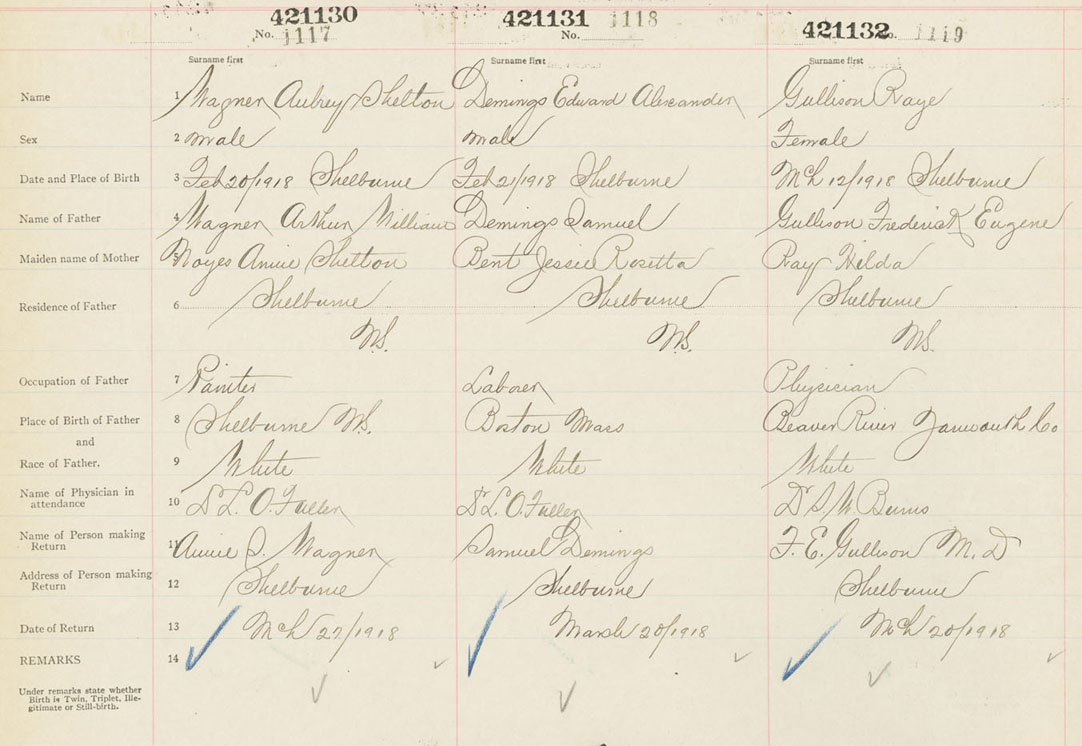 421130 421131 421132
No. 1117 No. 1118 No. 1119
Surname first Surname first Surname first
Name 1 Wagner Aubrey Shelton Demings Edward Alexander Gullison Raye
Sex 2 Male Male Female
Date and Place of Birth 3 Feb 20/1918 Shelburne Feb 21/1918 Shelburne Mch 12/1918 Shelburne
Name of Father 4 Wagner Arthur William Demings Samuel Gullison Frederick Eugene
Maiden name of Mother 5 Noyes Annie Shelton Bent Jessie Rosetta Ray Hilda
Residence of Father 6 Shelburne Shelburne Shelburne
N.S. N.S. N.S.
Occupation of Father 7 Painter Laborer Physician
Place of Birth of Father 8 Shelburne N.S. Boston Mass Beaver River Yarmouth Co
and
Race of Father. 9 White White White
Name of Physician in
attendance 10 Dr L. O. Fuller Dr L. O. Fuller Dr S. W. Burns
Name of Person making
Return 11 Annie S. Wagner Samuel Demings F. E. Gullison M. D
Address of Person making
Return 12 Shelburne Shelburne Shelburne
Date of Return 13 Mch 27/1918 March 20/1918 Mch 20/1918
REMARKS 14
Under remarks state whether
Birth is Twin, Triplet, Ille-
gitimate or Still-birth.